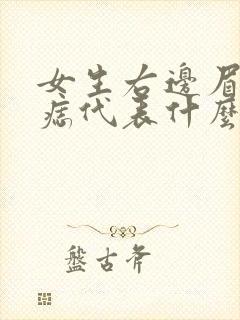 女生右邊眉
痣代表什麼
盤古斧